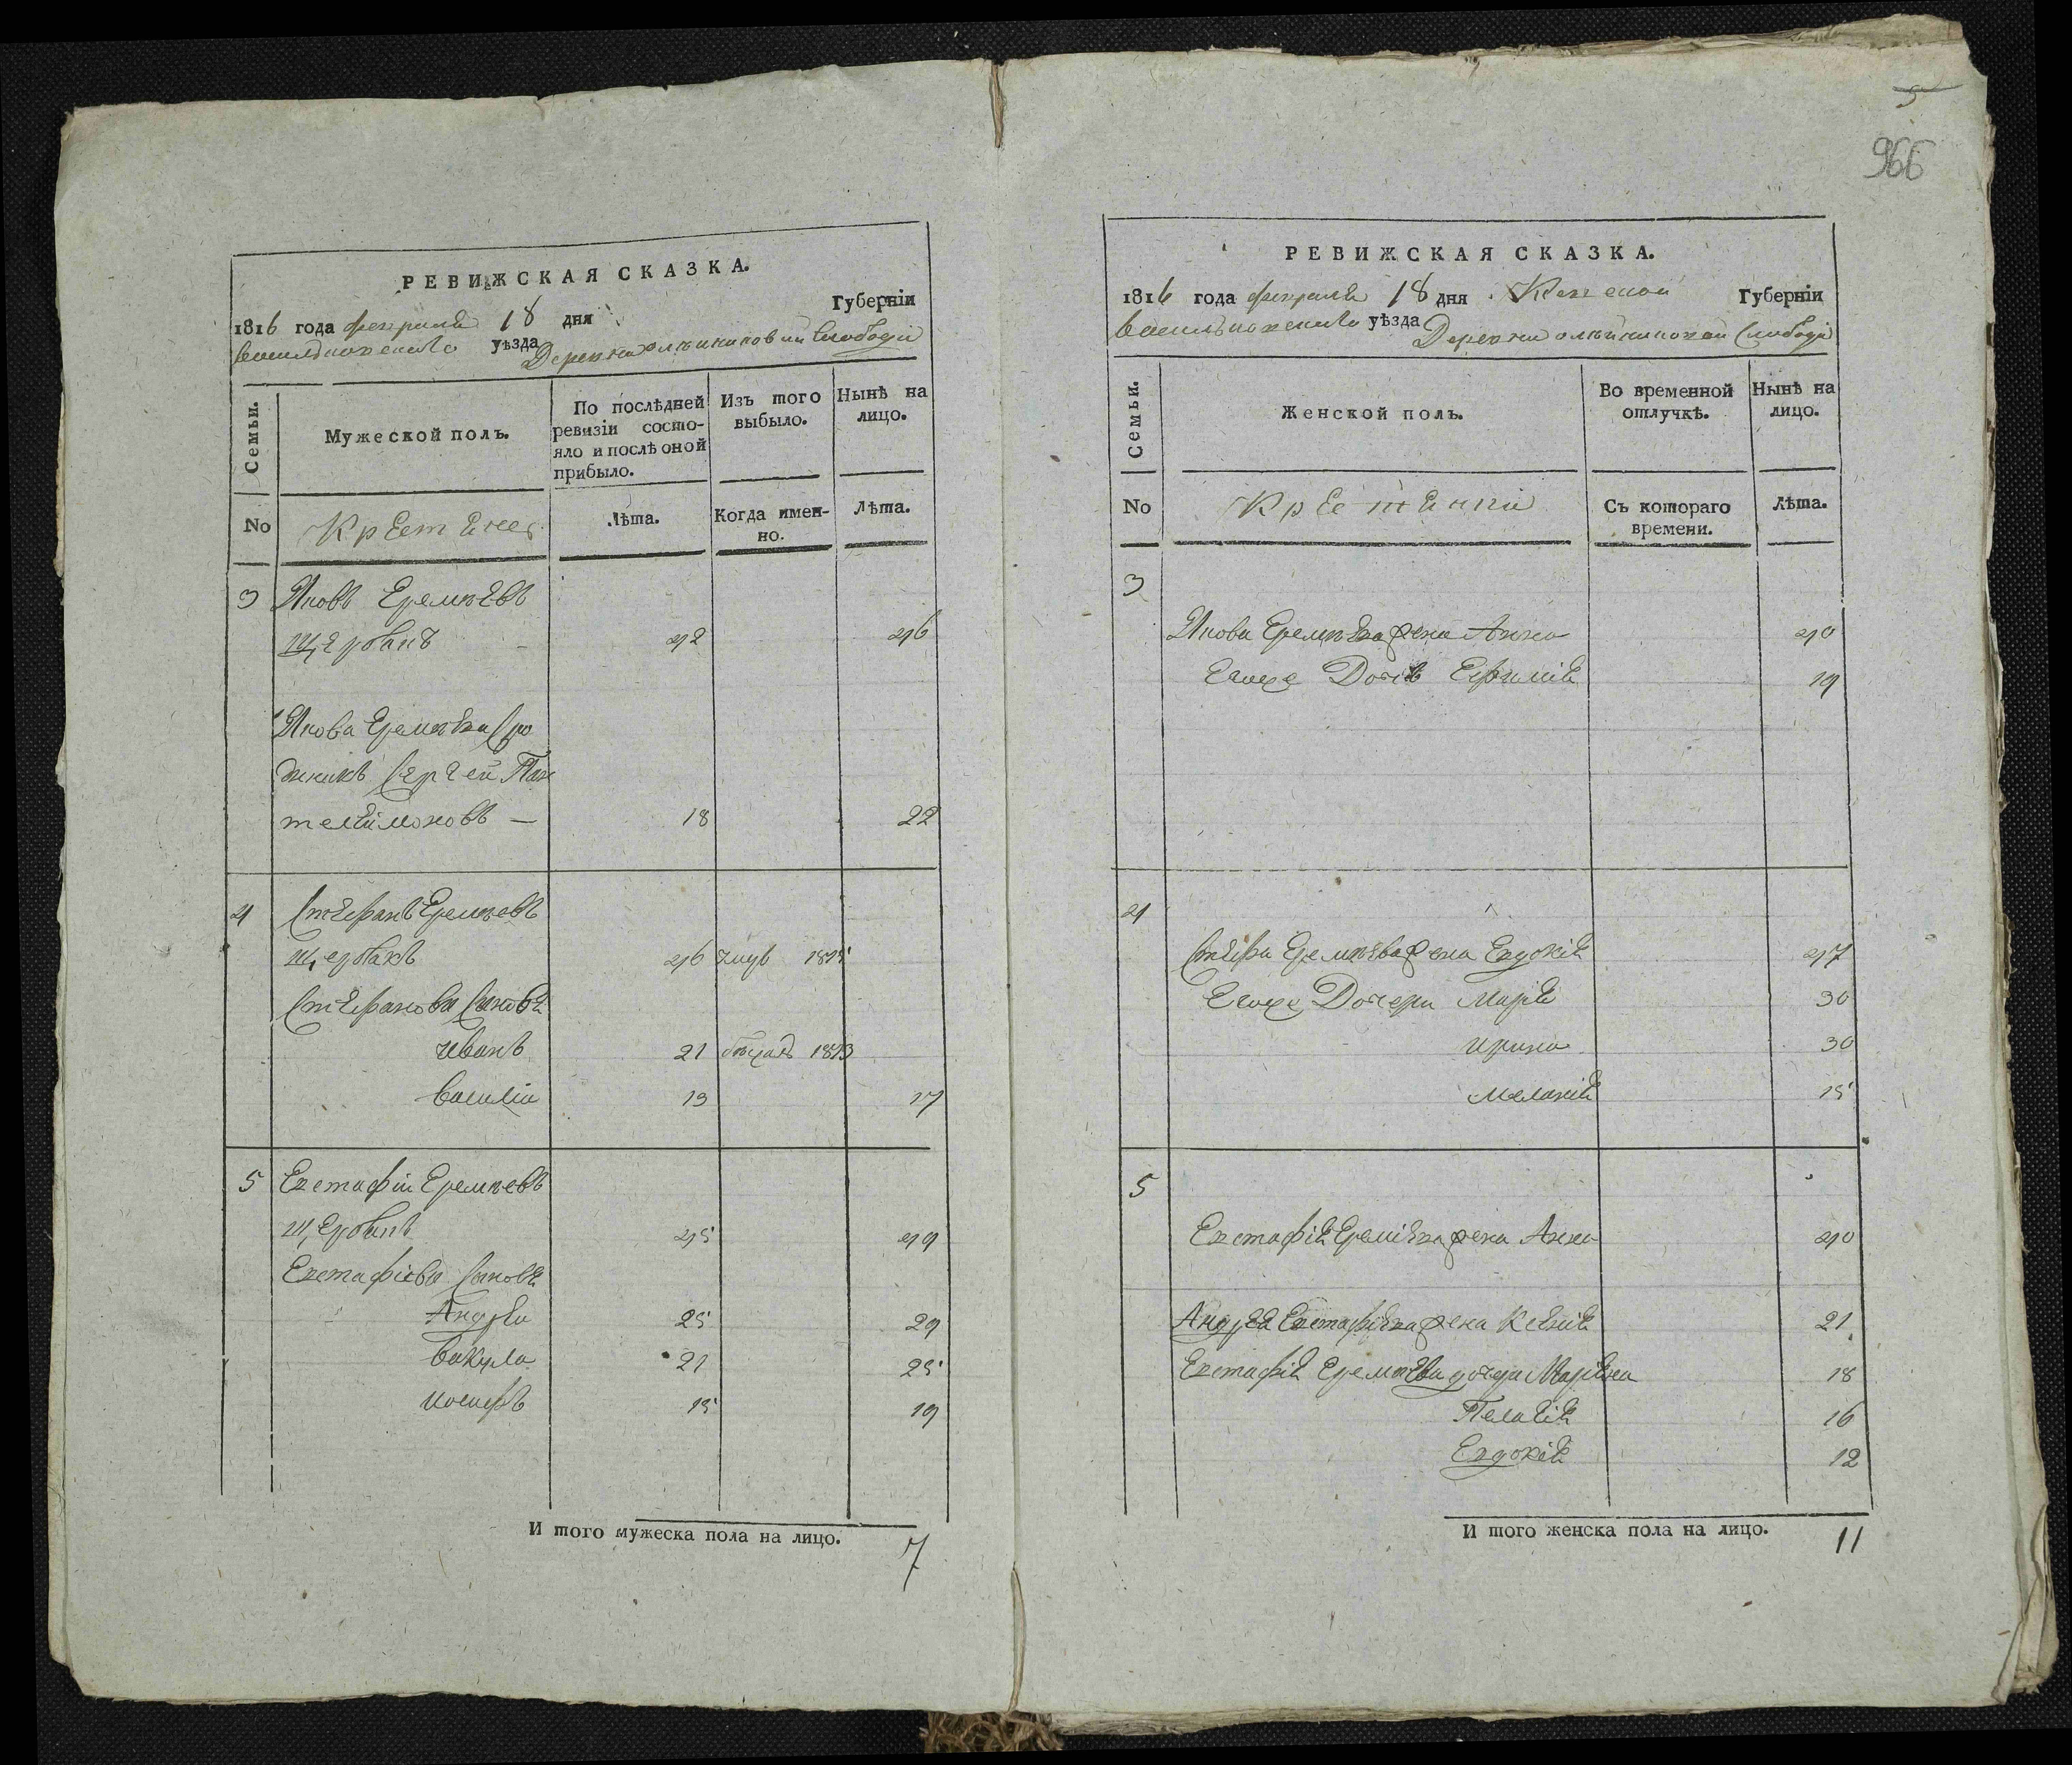 РЕВИЖСКАЯ СКАЗКА.
1816 года февраля 18 дня Губерніи
васильковскаго уѣзда Деревни олѣйниковой слободы
Семьи.
Мужеской полъ.
По послѣдней ревизіи состо-
яло и послѣ оной
прибыло.
Изъ того
выбыло.
Нынѣ на
лицо.
No
Лѣта.
Когда имен-
но.
Лѣта.
3 Яковъ Еремѣевъ
щербакъ 42 46
Якова Еремѣева сро
дникъ Сергей Пан
телѣймоновъ — 18 22
4 Стефанъ Еремѣевъ
щербакъ 46 1815
Стефановы сыновя
иванъ 21 1813
василій 13 17
5 Евстафій Еремѣевъ
щербакъ 45 49
Евстафіевы сыновя
Андрей 25 29
вакула 21 25
иосифъ 15 19
И того мужеска пола на лицо. 7
5
966
РЕВИЖСКАЯ СКАЗКА.
1816 года февраля 18 дня Кіевской Губерніи
васильковскаго уѣзда Деревни олѣйниковой слободы
Семьи.
Женской полъ.
Во временной
отлучкѣ.
Нынѣ на
лицо.
No
Съ котораго
времени.
Лѣта.
3
Якова Еремѣева жена Анна 40
Евоже Дочь Ефимія 19
4
Стефа Еремѣева жена Евдокія 47
Евоже Дочери Марія 30
ирина 30
меланія 15
5
Евстафія Еремѣева жена Анна 40
Андрея Евстафіева жена Ксенія 21
Евстафія Еремѣева дочери Маріяна 18
Пелагія 16
Евдокія 12
И того женска пола на лицо. 11